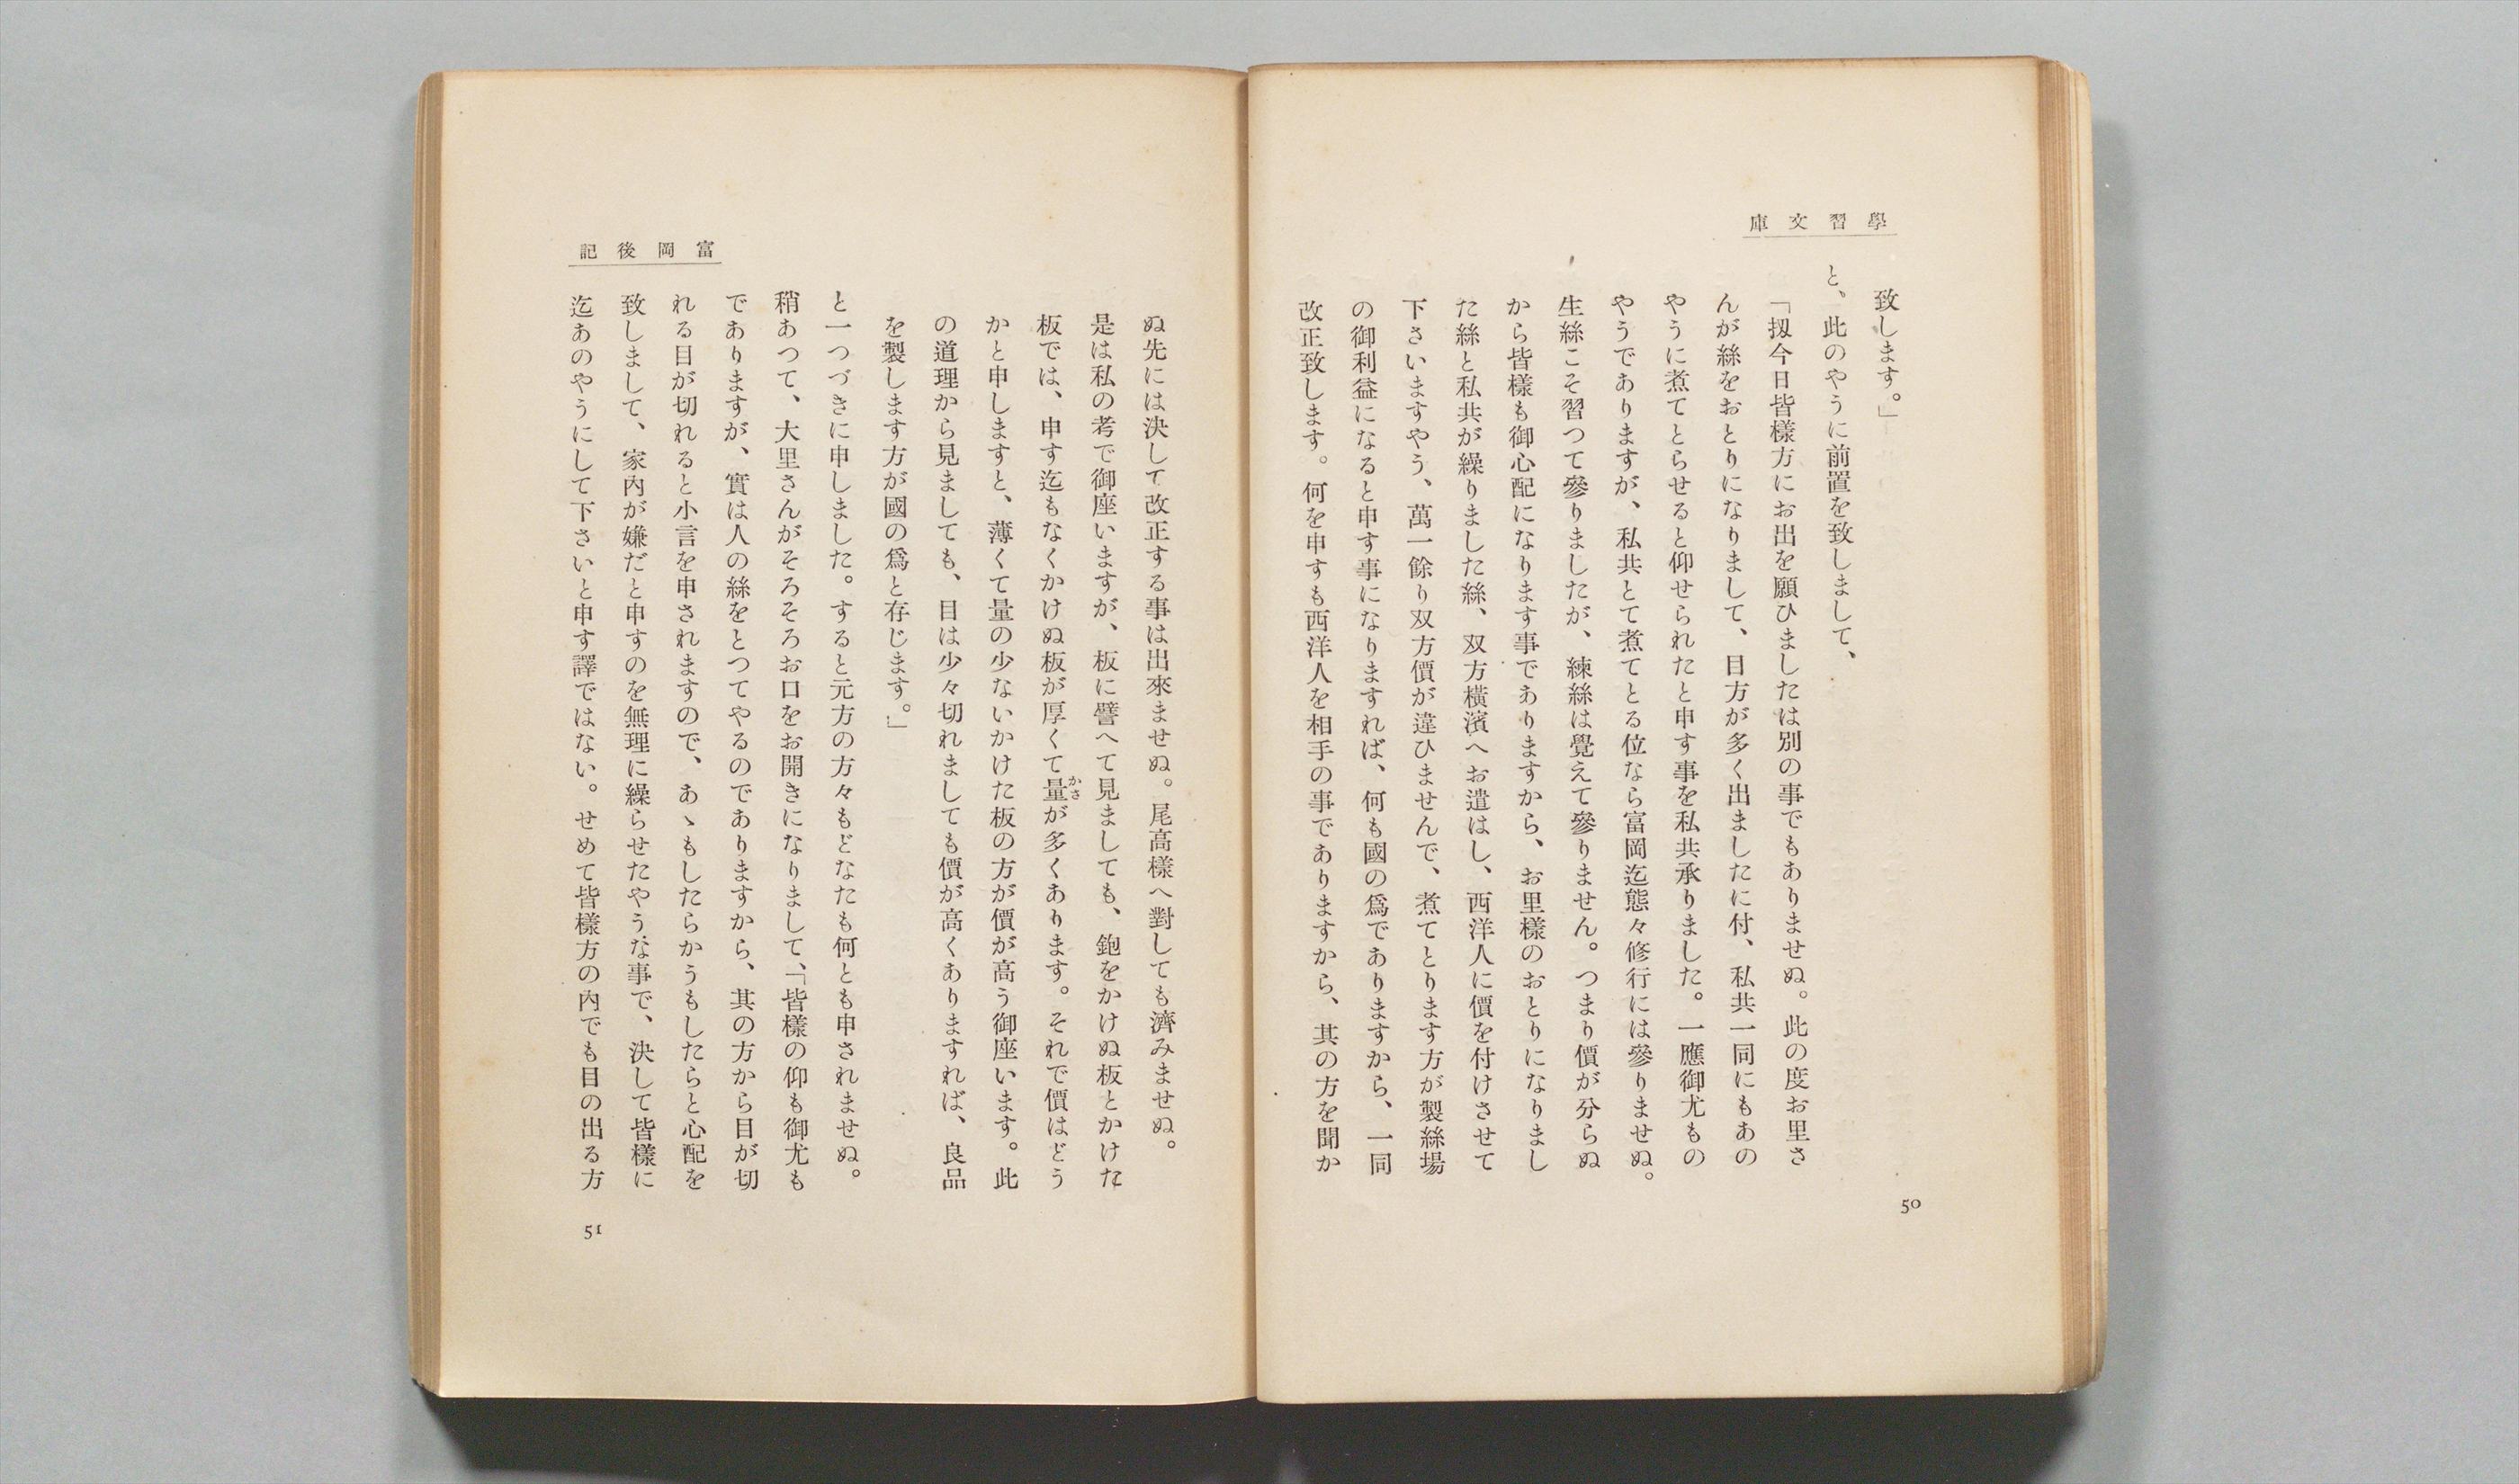 學習文庫
致します。」
と、此のやうに前置を致しまして、
「扨今日皆樣方にお出を願ひましたは別の事でもありませぬ。此の度お里さ
んが絲をおとりになりまして、目方が多く出ましたに付、私共一同にもあの
やうに煮てとらせると仰せられたと申す事を私共承りました。一應御尤もの
やうでありますが、私共とて煮てとる位なら富岡迄態々修行には參りませぬ。
生絲こそ習つて參りましたが、練絲は覺えて參りません。つまり價が分らぬ
から皆樣も御心配になります事でありますから、お里樣のおとりになりまし
た絲と私共が繰りました絲、双方橫濱へお遣はし、西洋人に價を付けさせて
下さいますやう、萬一餘り双方價が違ひませんで、煮てとります方が製絲場
の御利益になると申す事になりますれば、何も國の爲でありますから、一同
改正致します。何を申すも西洋人を相手の事でありますから、其の方を聞か
50
富岡後記
ぬ先には決して改正する事は出來ませぬ。尾高樣へ對しても濟みませぬ。
是は私の考で御座いますが、板に譬へて見ましても、鉋をかけぬ板とかけた
板では、申す迄もなくかけぬ板が厚くて量かさが多くあります。それで價はどう
かと申しますと、薄くて量の少ないかけた板の方が價が高う御座います。此
の道理から見ましても、目は少々切れましても價が高くありますれば、良品
を製します方が國の爲と存じます。」
と一つづきに申しました。すると元方の方々もどなたも何とも申されませぬ。
稍あつて、大里さんがそろそろお口をお開きになりまして、「皆樣の仰も御尤も
でありますが、實は人の絲をとつてやるのでありますから、其の方から目が切
れる目が切れると小言を申されますので、あゝもしたらかうもしたらと心配を
致しまして、家內が嫌だと申すのを無理に繰らせたやうな事で、決して皆樣に
迄あのやうにして下さいと申す譯ではない。せめて皆樣方の內でも目の出る方
51